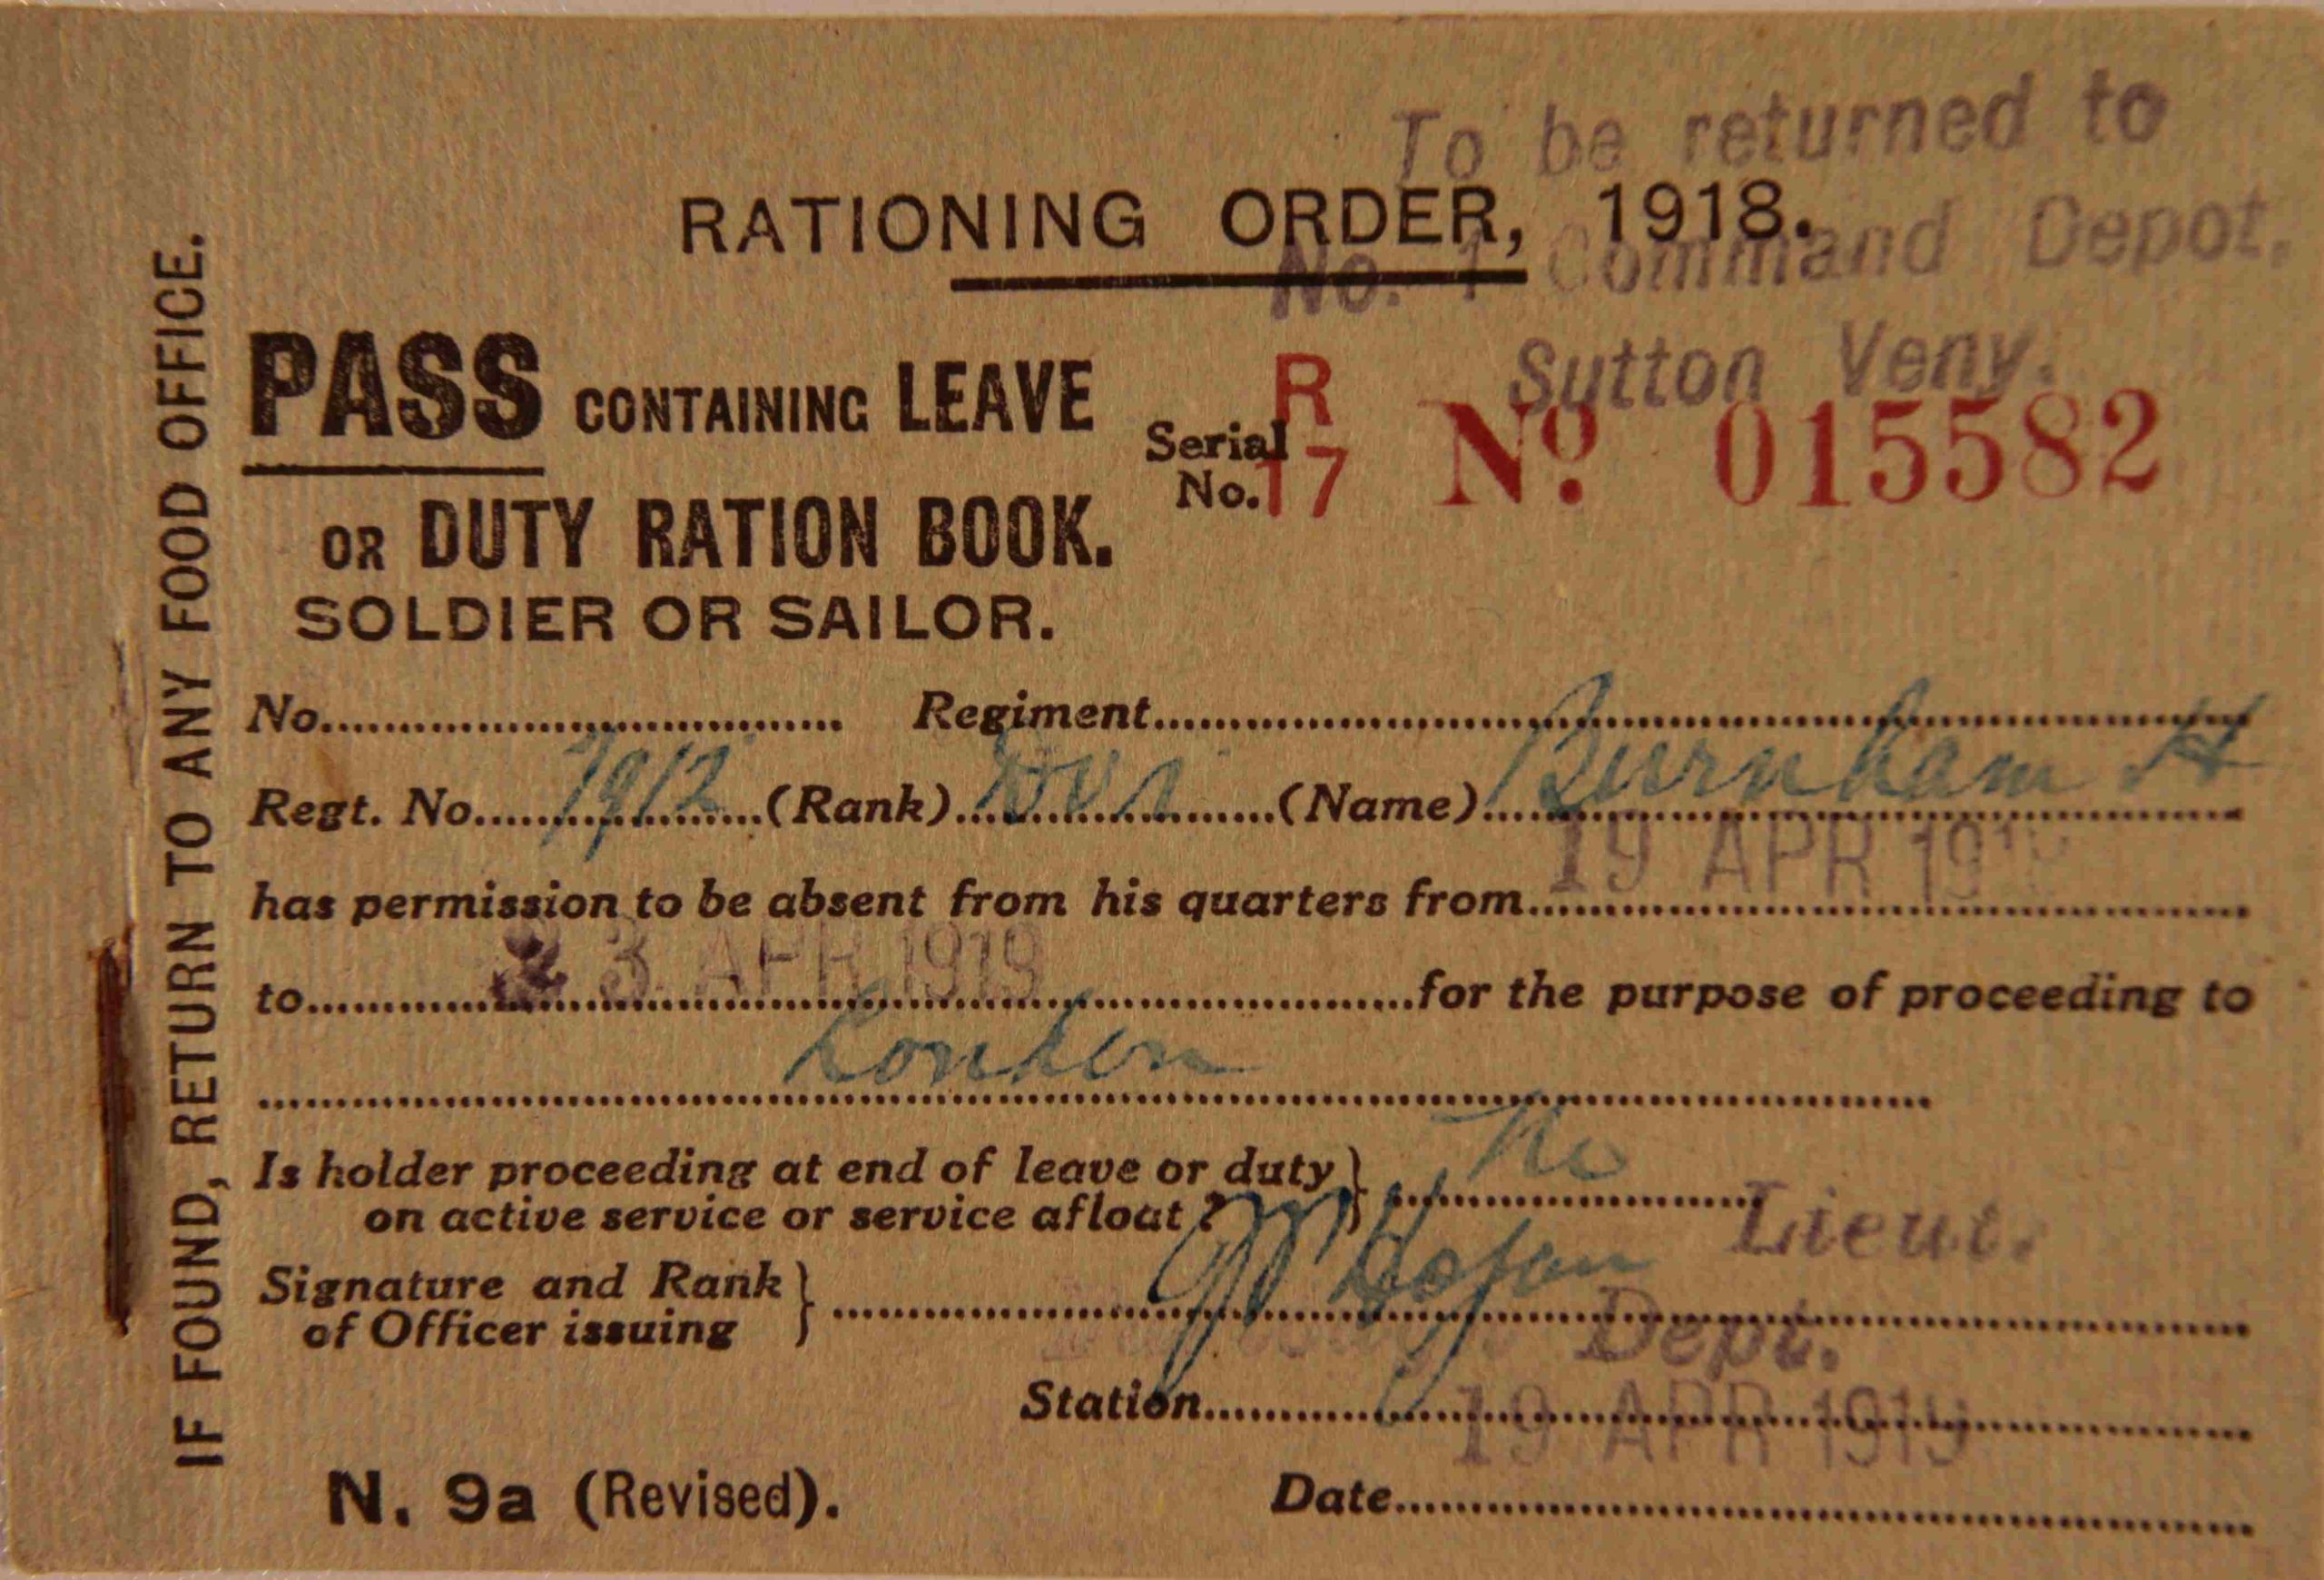 To be returned to
RATIONING ORDER, 1918.
No. 1 Command Depot.
Sutton Veny.
PASS CONTAINING LEAVE
Serial No. R 17 No. 015582
OR DUTY RATION BOOK.
SOLDIER OR SAILOR.
No. Regiment
Regt. No. 7912 (Rank) Dvr (Name) Burnham H
has permission to be absent from his quarters from 19 APR
to 23 APR 1919 for the purpose of proceeding to
London
Is holder proceeding at end of leave or duty
on active service or service afloat? No
Lieut.
Signature and Rank
of Officer issuing
Dept.
Station
19 APR 1919
N. 9a (Revised). Date
IF FOUND, RETURN TO ANY FOOD OFFICE.